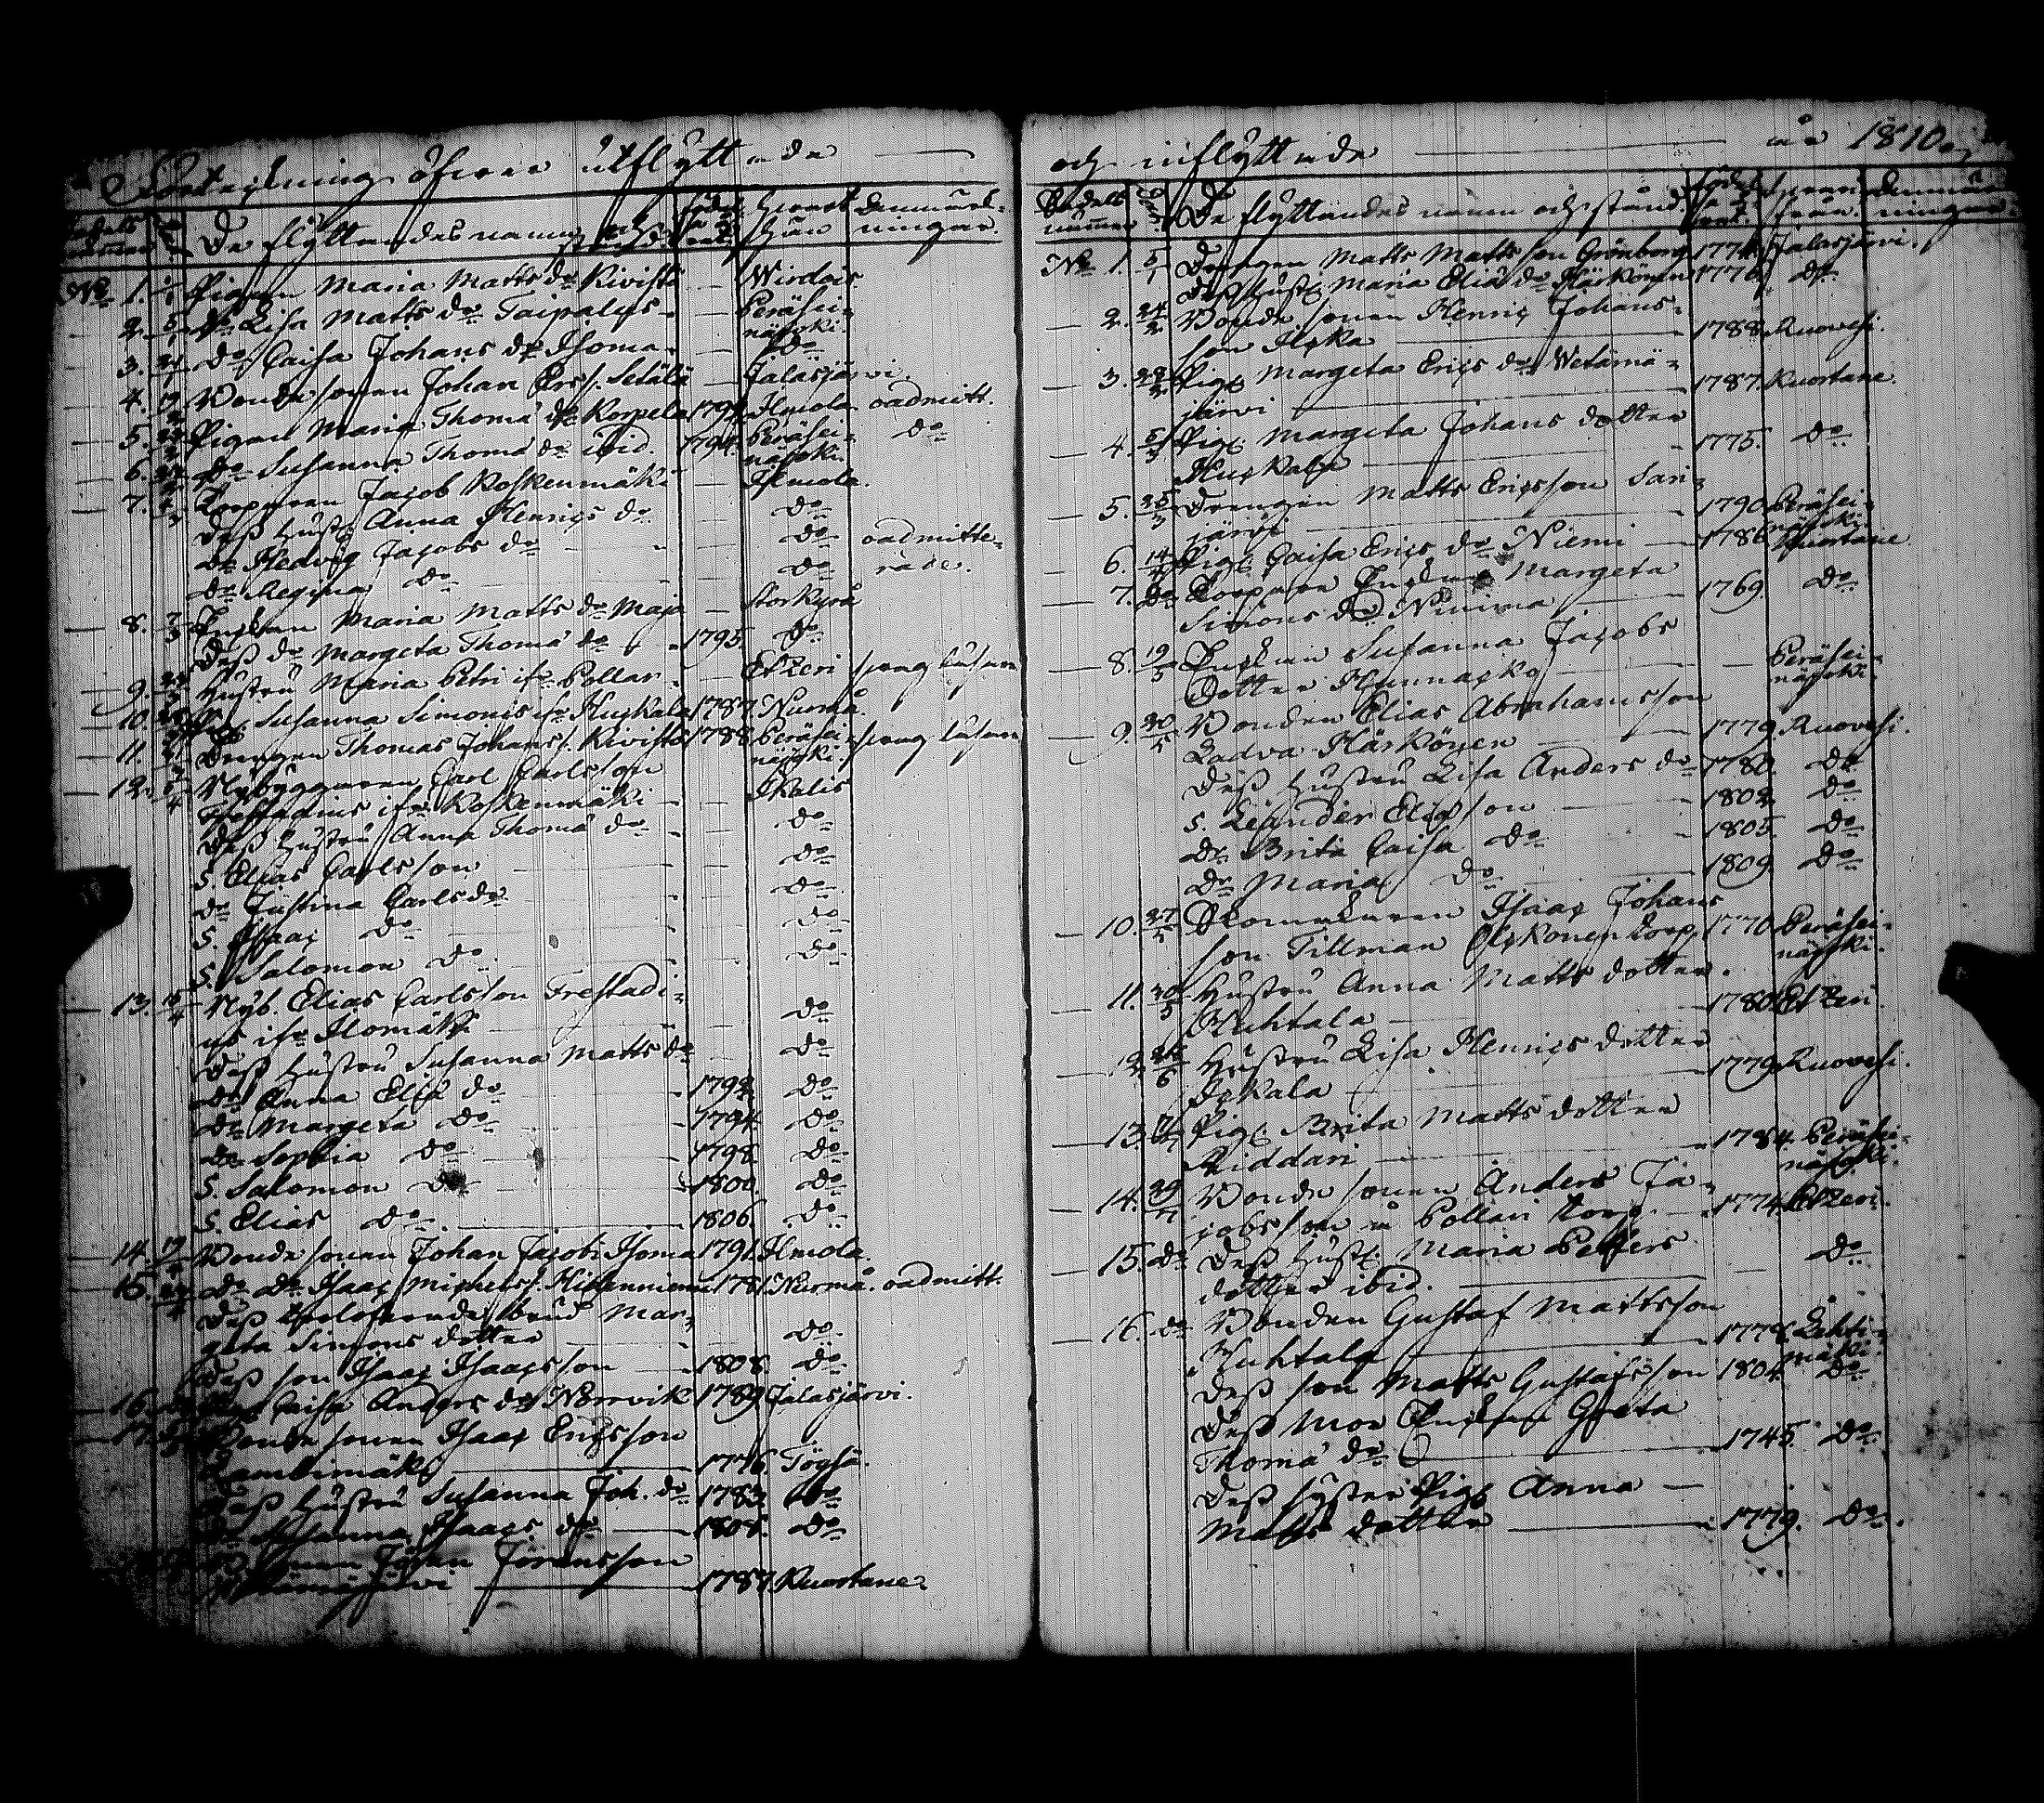 Förteckning öfver utflyttade
De flyttandes namn och stånd
hvart hän
Anmärkningar.
No 1. Pigan Maria Matts dr Kivistö — Wirdois.
2. 5/1 dr Lisa Matts dr Taipalus — Peräsei-
näjoki.
3. do Caisa Johans dr Isoma — do
4. Bonde sonen Johan Erss. Setälä — Jalasjärvi.
5. Pigan Maria Thomæ dr Korpela Ilmola oadmitt.
6. do Susanna Thomæ dr ibid. 1794. Peräsei- do
näjoki.
7. Torparen Jacob Koskenmäki — Ilmola.
Dess hustr. Anna Henrics dr do
dr Hedvig Jacobs dr — do oadmitte-
dr Regina do — do rade.
8. 7/3 Enkan Maria Matts dr Maja — Storkyrå
Dess dr Margeta Thomæ dr 1795. do
9. Hustru Maria Petri ifr. Pollar — Etzeri
10. Susanna Simonis ifr. Huckala 1787. Nurmå.
11. Drengen Thomas Johanss. Kivistö 1788. Peräsei-
näjoki.
12. Nybyggaren Carl Carlsson
ifr. Koskenmäki — Ikalis
Dess hustru Anna Thomæ dr — do
S. Elias Carlsson do
dr Justina Carls dr do
S. Isaac do do
S. Salomon do do
13. 15/4 Nyb. Elias Carlsson Frestadi-
us ifr. do
Dess hustru Susanna Matts dr — do
dr Anna Eliæ dr 1792. do
dr Margeta do 1794. do
dr Sophia do 1798. do
S. Salomon do 1800. do
S. Elias do 1806. do
14. 19/4 Bonde sonen Johan Jacobs. Isoma 1791. Ilmola.
15. do do Isaac Michelss. Hidenniemi 1781. Nurmå. oadmitt.
Dess trolofvade brud Mar-
geta Simons dotter — do
Dess son Isaac Isaacsson — 1808. do
16. Caisa Anders dr Norrvik 1789. Jalasjärvi.
17. Bonde sonen Isaac Ericsson
Lambimäki 1776. Töysä.
Dess hustru Susanna Joh. dr 1783. do
dr Susanna Isaacs dr do
sonen Johan Jöransson
1787. Kuortane.
och inflyttade — år 1810.
De flyttandes namn och stånd
Anmärkningar.
No 1. 5/1 Drengen Matts Mattsson Grönberg 1774. Jalasjärvi.
Dess hust. Maria Eliæ dr Härkönen 1776. do
2. 24/2 Bonde sonen Henric Johans-
son Ilcka 1788. Ruovesi.
3. 28/2 Pig. Margeta Erics dr Wetämä-
järvi 1787. Kuortane.
4. 5/3 Pig. Margeta Johans dotter
Huckala 1775. do
5. 25/3 Drengen Matts Ericsson Sari-
järvi 1790. Peräsei-
näjoki.
6. 14/4 Pig. Caisa Erics dr Niemi 1786. Kuortane
7. do Torpare Enkan Margeta
Simons dr 1769. do
8. 19/5 Enkan Susanna Jacobs
Dotter — Peräsei-
näjoki.
9. 20/5 Bonden Elias Abrahamsson
Ladva Härkönen 1779. Ruovesi.
Dess hustru Lisa Anders dr 1780. do
S. Leander Eliasson 1802. do
dr Brita Caisa do 1805. do
dr Maria do 1809. do
10. 27/5 Skomakaren Isaac Johans
son Tillman torp. 1770. Peräsei-
näjoki.
11. 30/5 Hustru Anna Matts dotter.
Huhtala 1780. Etzeri.
12. Hustru Lisa Henrics dotter
1779. Ruovesi.
13. Pig. Brita Matts dotter
Riddari 1784. Peräsei-
näjoki.
14. Bonde sonen Anders Ja-
cobsson å Pollari torp 1774. Etzeri.
15. do Dess hust. Maria Petters
dotter ibid. — do
16. do Bonden Gustaf Mattsson
Huhtala Lehti-
mäki.
Dess son Matts Gustafsson 1804. do
Dess Mor Enkan Greta
Thomæ dr 1745. do
Dess syster Pig. Anna —
Matts dotter 1779. do.